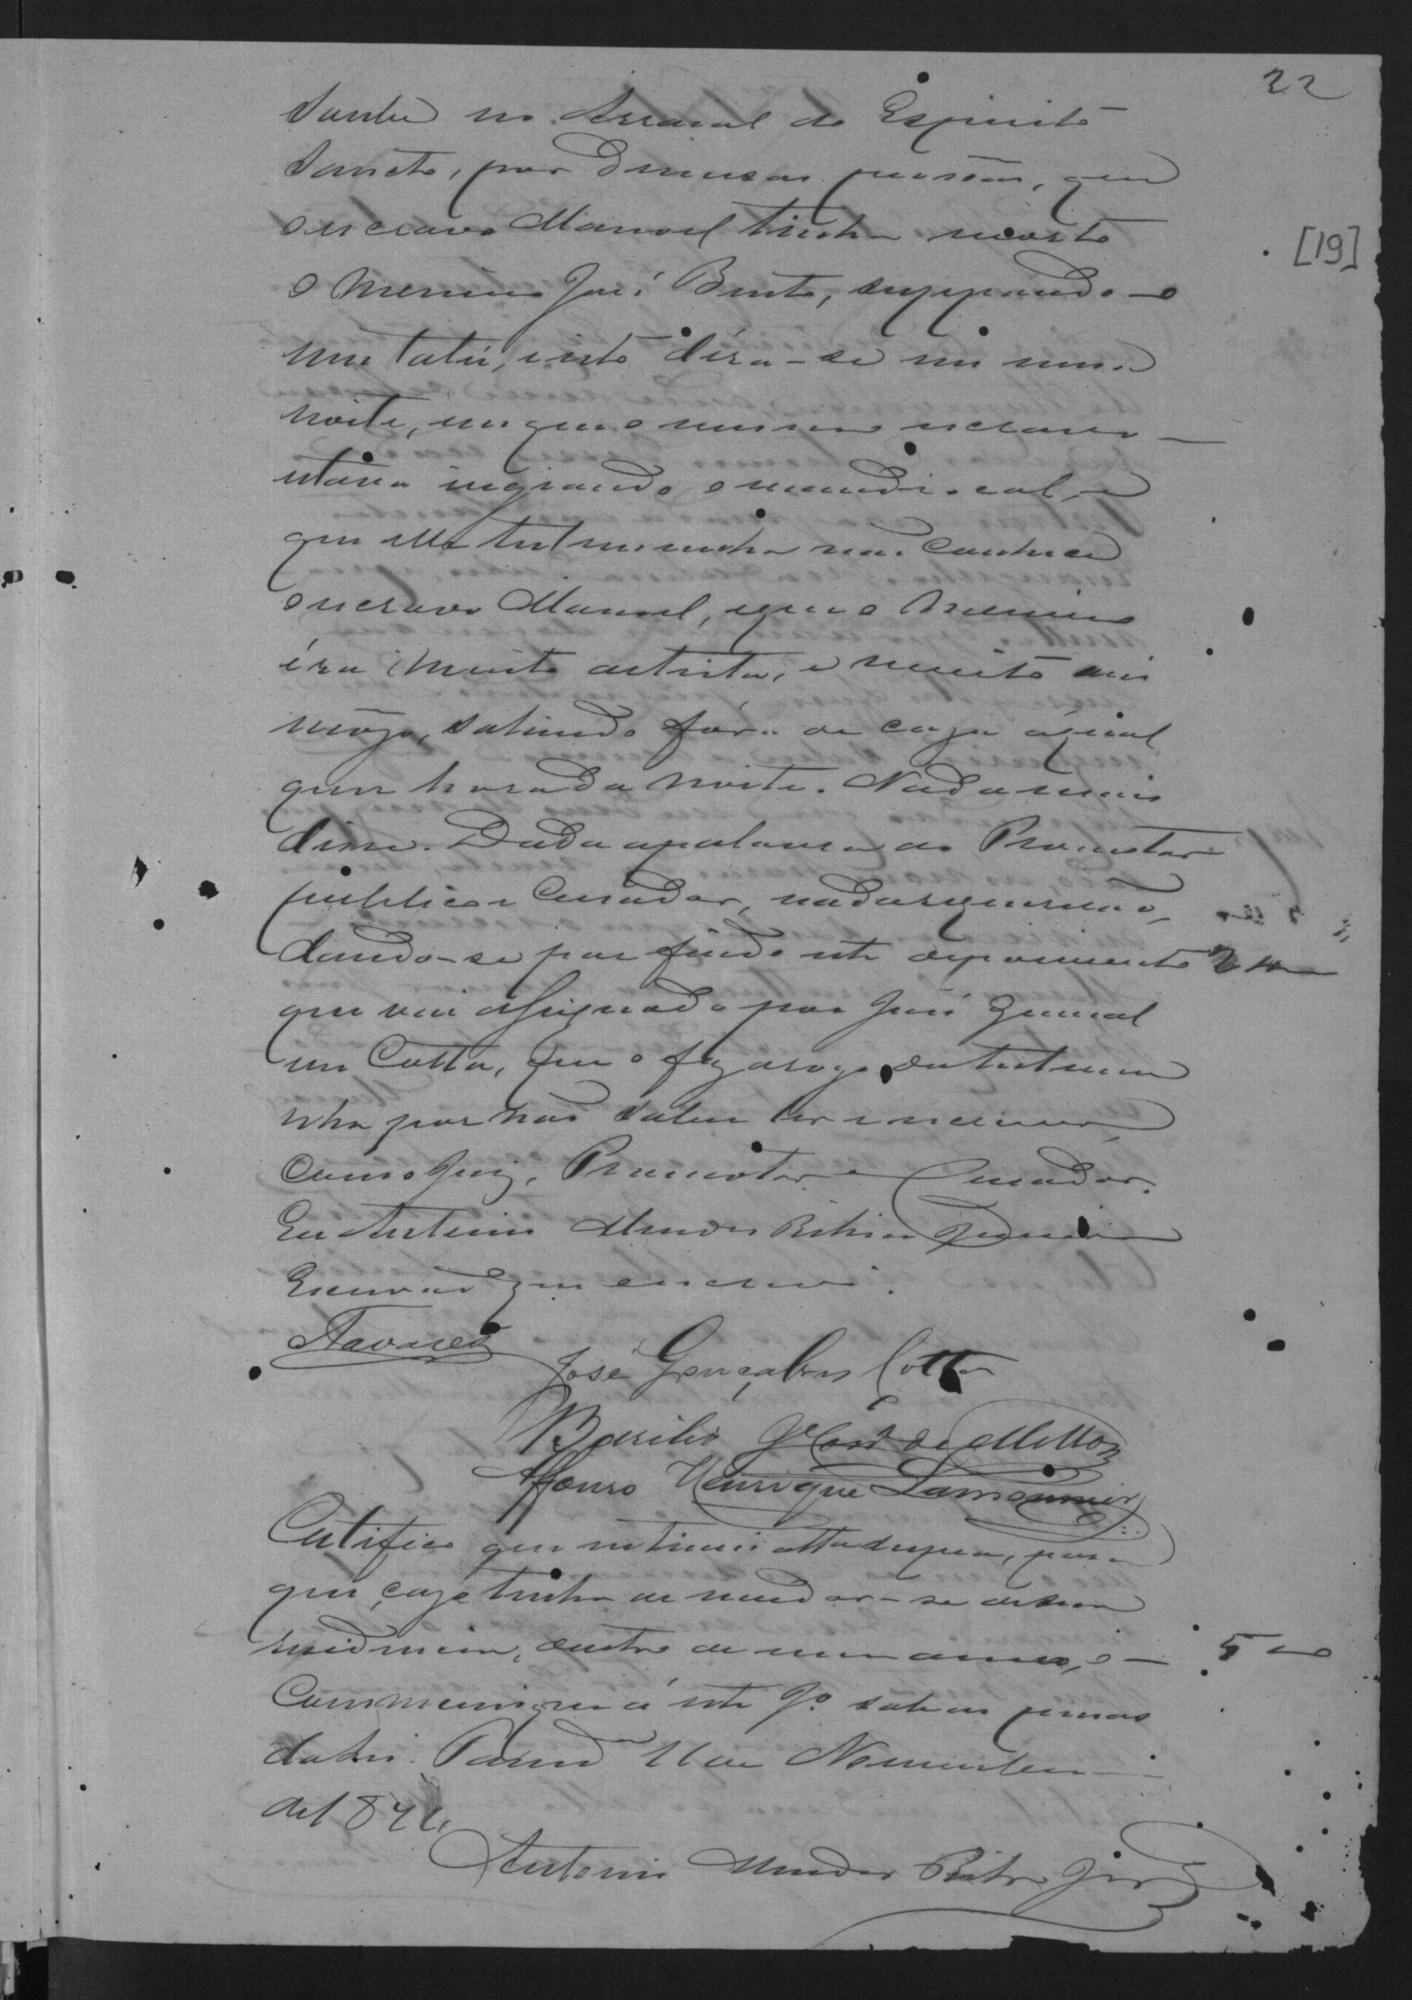 22
soube no Arraial do Espirito
Sancto, por diversas pessôas, que
o escravo Manoel tinha morto
[19]
o menino José Bento, suppondo-o
um tatú, e isto déra-se em uma
noite, em que o mesmo escravo
estava segurando o mandiocal, e
que ella testemunha não conhece
o escravo Manoel, e que o menino
éra muito artista, e muito
sahindo fóra de caza á qual
quer hora da noite. Nada mais
disse. Dada a palavra ao Promotor
publico e Curador, nada requererão,
dando-se por findo este depoimento
que vai assignado por José Gonçal
ves Cotta, que o faz a rogo da testemu
nha por não saber ler e escrever,
com o Juiz, Promotor e Curador.
Eu Antonio Mendes Ribeiro Junior
Escrivão que escrevi.
Tavares
José Gonçalves Cotta
Basilio de Mello
Affonso Henrique Lamounier
Certifico que notifiquei a testemunha, para
que, cazo tenha de mudar-se de sua
residencia, dentro de um anno, o
500
communique á este Jº sob as penas
da lei. Pará 11 de Novembro
de 187
Antonio Mendes Ribrº Jor